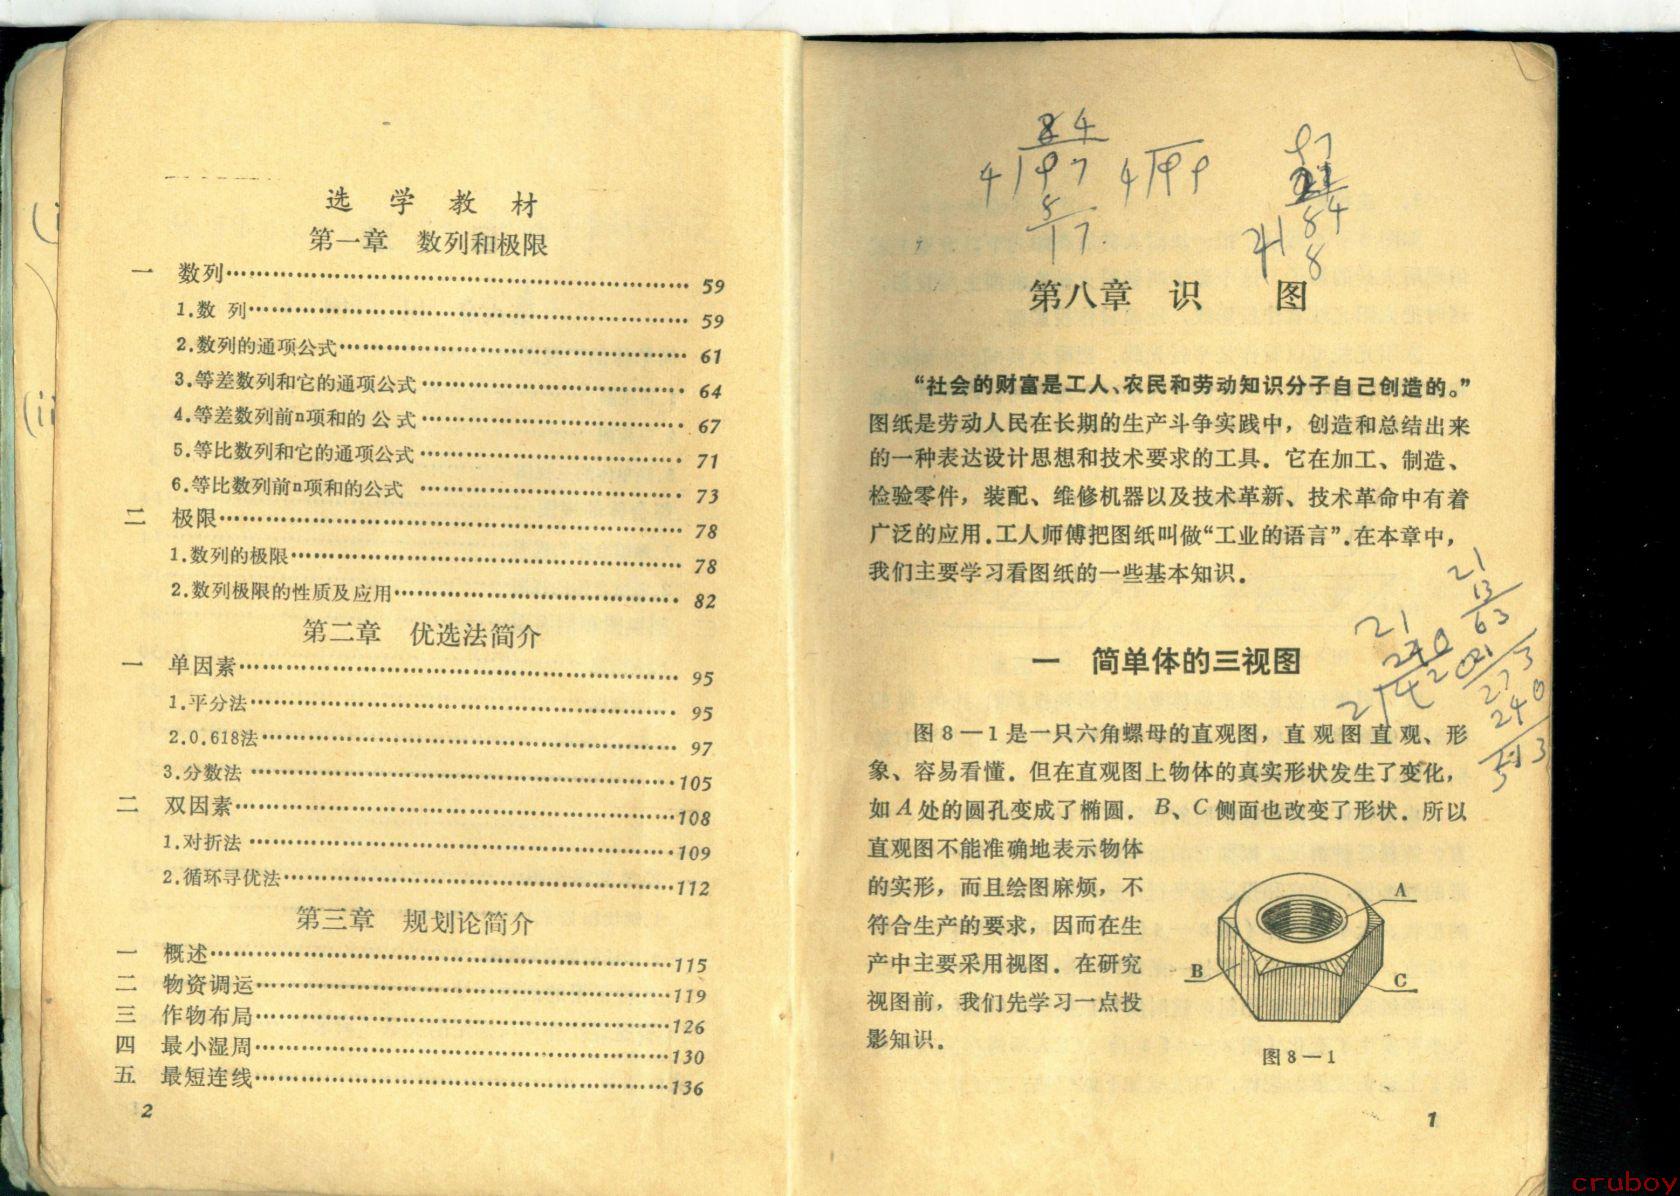 选 学 教 材
第一章 数列和极限
一 数列…… 59
1.数 列…… 59
2.数列的通项公式…… 61
3.等差数列和它的通项公式…… 64
4.等差数列前n项和的公式…… 67
5.等比数列和它的通项公式…… 71
6.等比数列前n项和的公式…… 73
二 极限…… 78
1.数列的极限…… 78
2.数列极限的性质及应用…… 82
第二章 优选法简介
一 单因素…… 95
1.平分法…… 95
2.0.618法…… 97
3.分数法…… 105
二 双因素…… 108
1.对折法…… 109
2.循环寻优法…… 112
第三章 规划论简介
一 概述…… 115
二 物资调运…… 119
三 作物布局…… 126
四 最小湿周…… 130
五 最短连线…… 136
2
84
4 97 4 99
8
17
97
21
84
8
第八章 识 图
“社会的财富是工人、农民和劳动知识分子自己创造的。”
图纸是劳动人民在长期的生产斗争实践中，创造和总结出来
的一种表达设计思想和技术要求的工具．它在加工、制造、
检验零件，装配、维修机器以及技术革新、技术革命中有着
广泛的应用．工人师傅把图纸叫做“工业的语言”．在本章中，
我们主要学习看图纸的一些基本知识．
21
13
63
21
273
240
513
一 简单体的三视图
图8—1是一只六角螺母的直观图，直观图直观、形
象、容易看懂．但在直观图上物体的真实形状发生了变化，
如A处的圆孔变成了椭圆．B、C侧面也改变了形状．所以
直观图不能准确地表示物体
的实形，而且绘图麻烦，不
符合生产的要求，因而在生
产中主要采用视图．在研究
视图前，我们先学习一点投
影知识．
A
B
C
图8—1
1
cruboy